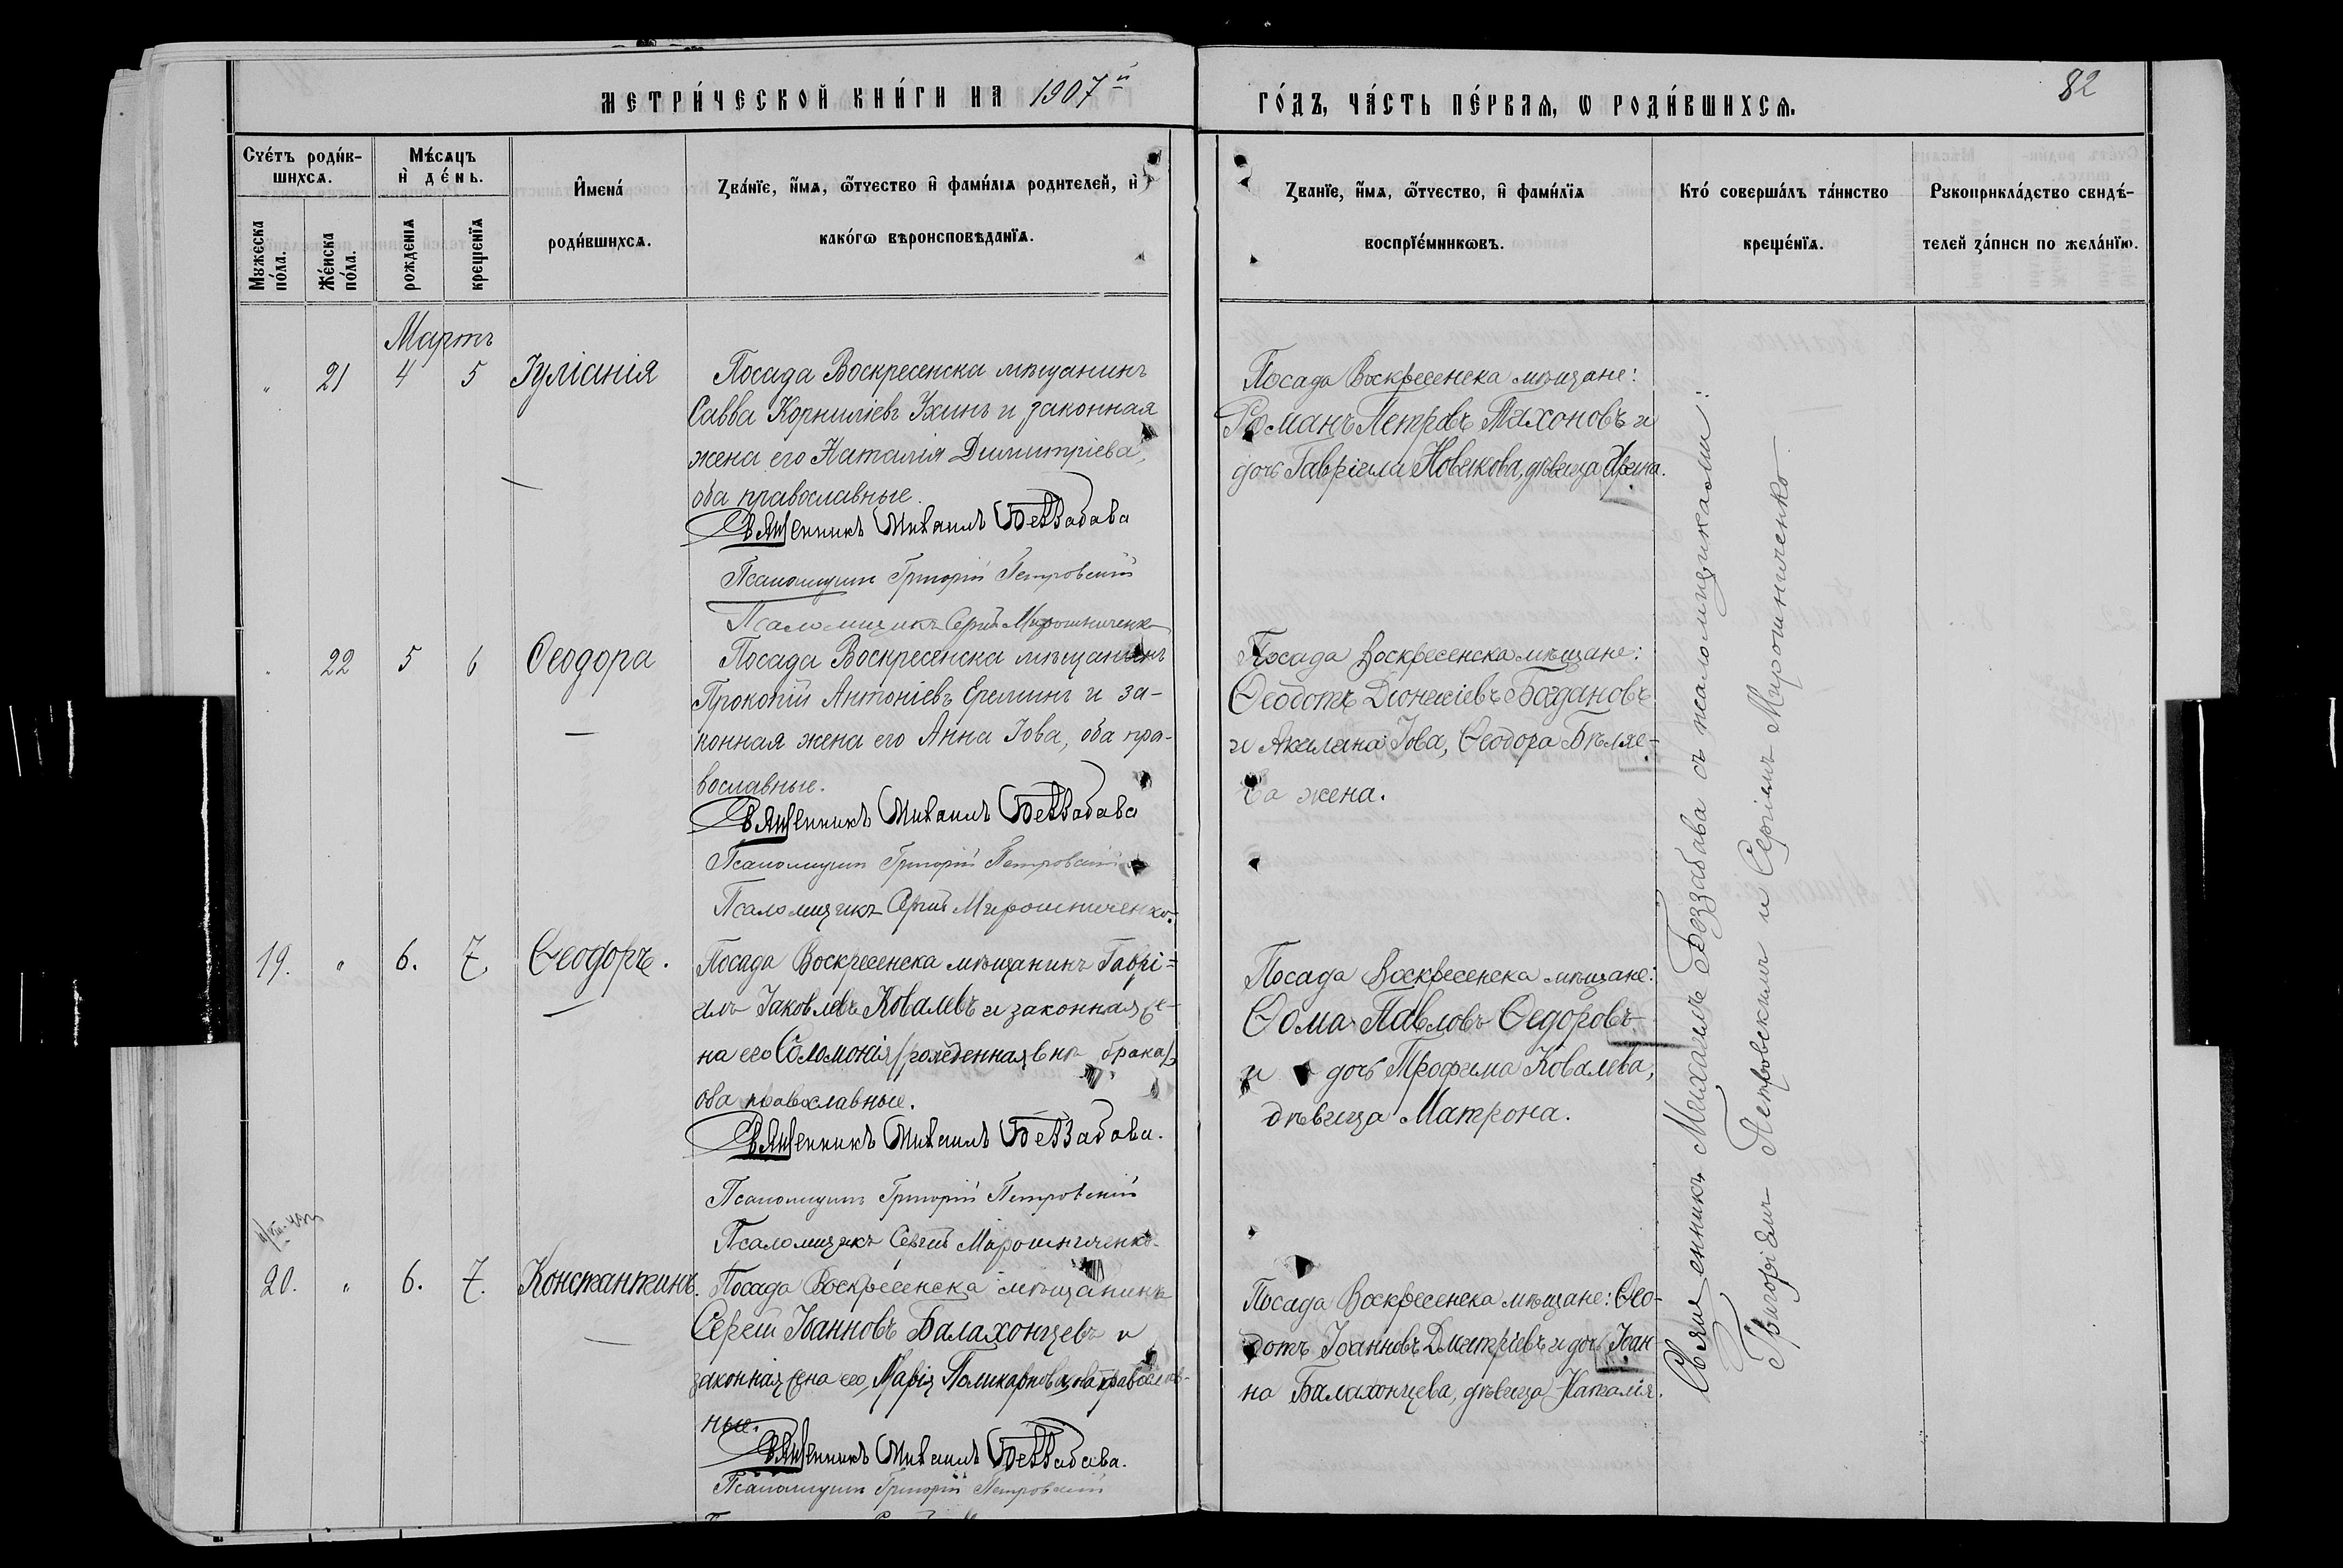 МЕТРИ́ЧЕСКОЙ КНИ́ГИ НА 1907й
ГО́ДЪ, ЧА́СТЬ ПЕ́РВАѦ, Ѡ РОДИ́ВШИХСѦ.
82
Счéтъ роди́в-
шихсѧ.
Мꙋжеска
по́ла.
Же́нска
по́ла.
Мѣ́сѧцъ
и҆ де́нь.
рожденїѧ
крещенїѧ
И҆мена́
роди́вшихсѧ.
Зва́нїе, и҆́мѧ, ѻ҆́тчество и҆ фами́лїѧ родителей, и҆
како́гѡ вѣроисповѣданїѧ.
Званїе, и҆́мѧ, ѻ҆́тчество, и҆ фами́лїѧ
воспрїе́мникѡвъ.
Кто́ соверша́лъ та́инство
креще́нїѧ.
Рꙋкоприкла́дство свидѣ́-
телей за́писи по жела́нїю.
Мартъ
" 21 4 5 Іуліанія
Посада Воскресенска мѣщанинъ
Савва Корниліевъ Ухинъ и законная
жена его Наталія Димитріева,
оба православные.
Священникъ Михаилъ Беззабава
Псаломщикъ Григорій Петровскій
Псаломщикъ Сергій Мирошниченко
Посада Воскресенска мѣщане:
Романъ Петровъ Тихоновъ и
дочь Гавріила Новикова, дѣвица Ирина.
" 22 5 6 Ѳеодора
Посада Воскресенска мѣщанинъ
Прокопій Антоніевъ Ереминъ и за-
конная жена его Анна Іова, оба пра-
вославные.
Священникъ Михаилъ Беззабава
Псаломщикъ Григорій Петровскій
Псаломщикъ Сергій Мирошниченко.
Посада Воскресенска мѣщане:
Ѳеодотъ Діонисіевъ Богдановъ
и Акилина Іова, Ѳеодора Бѣляе-
ва жена.
19. " 6. 7. Ѳеодоръ.
Посада Воскресенска мѣщанинъ Гаврі-
илъ Іаковлевъ Ковалевъ и законная же-
на его Соломонія (рожденная внѣ брака)
оба православные.
Священникъ Михаилъ Беззабава.
Псаломщикъ Григорій Петровскій
Псаломщикъ Сергій Мирошниченко
Посада Воскресенска мѣщане:
Ѳома Павловъ Ѳедоровъ
и дочь Трофима Ковалева,
дѣвица Матрона.
20. " 6. 7. Константинъ.
Посада Воскресенска мѣщанинъ
Сергій Іоанновъ Балахонцевъ и
законная жена его, Марія Поликарпова, оба православ-
ные.
Священникъ Михаилъ Беззабава.
Псаломщикъ Григорій Петровскій
Посада Воскресенска мѣщане: Ѳео-
дотъ Іоанновъ Дмитріевъ и дочь Іоан
на Балахонцева, дѣвица Наталія.
Священникъ Михаилъ Беззабава съ псаломщиками:
Григоріемъ Петровскимъ и Сергіемъ Мирошниченко